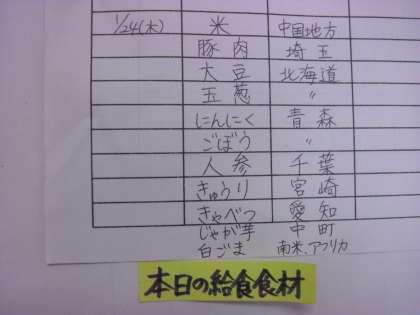 1/24(木) 米 中国地方
豚肉 埼玉
大豆 北海道
玉葱 〃
にんにく 青森
ごぼう 〃
人参 千葉
きゅうり 宮崎
きゃべつ 愛知
じゃが芋 中町
白ごま 南米、アフリカ
本日の給食食材